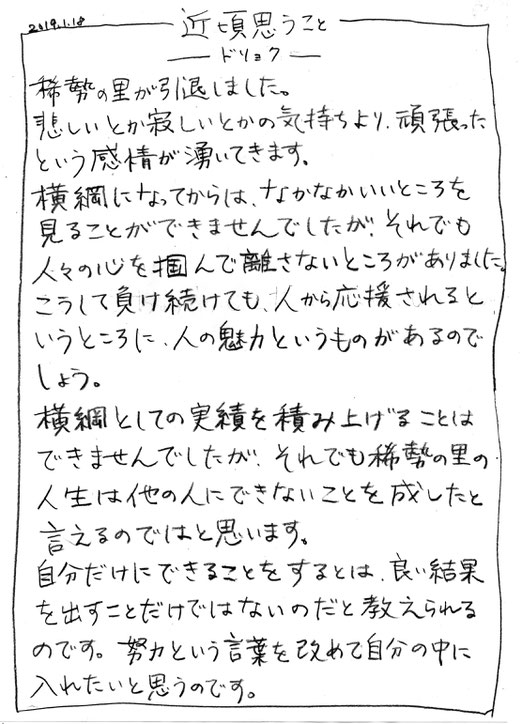 2019.1.18
近頃思うこと
ドリョク
稀勢の里が引退しました。
悲しいとか寂しいとかの気持ちより、頑張った
という感情が湧いてきます。
横綱になってからは、なかなかいいところを
見ることができませんでしたが、それでも
人々の心を掴んで離さないところがありました。
こうして負け続けても、人から応援されると
いうところに、人の魅力というものがあるので
しょう。
横綱としての実績を積み上げることは
できませんでしたが、それでも稀勢の里の
人生は他の人にできないことを成したと
言えるのではと思います。
自分だけにできることをするとは、良い結果
を出すことだけではないのだと教えられる
のです。努力という言葉を改めて自分の中に
入れたいと思うのです。